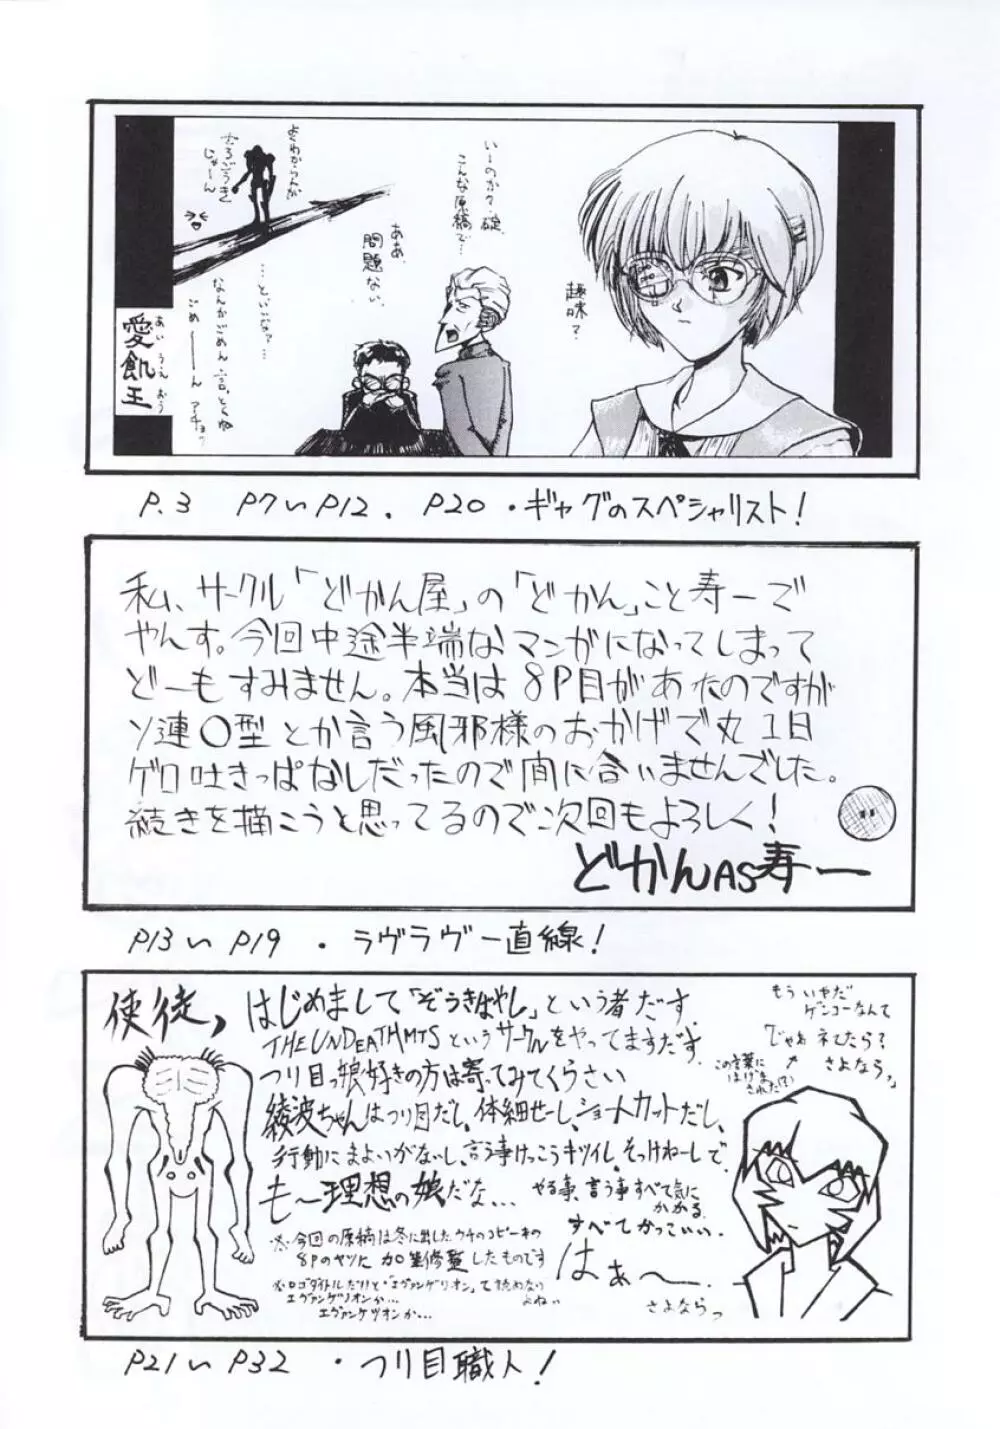 いーのか?碇
こんな原稿で…
ああ、
問題ない。
趣味?
よくわからんが
しょごうき
じゃーん
…といいなァ…
なんかごめん、言っとくね
ごめ〜〜ん
愛飢王
あい うえ おう
P.3 P7〜P12. P20・ギャグのスペシャリスト!
私、サークル「どかん屋」の「どかん」こと寿一で
やんす。今回中途半端なマンガになってしまって
どーもすみません。本当は8P目があたのですが
ソ連〇型とか言う風邪様のおかげで丸1日
ゲロ吐きっぱなしだったので間に合いませんでした。
続きを描こうと思ってるので次回もよろしく!
どかんAS寿一
P13〜P19・ラヴラヴ一直線!
使徒,
はじめまして「ぞうきばやし」という者だす
THE UNDEATHMTSというサークルをやってますだす.
つり目っ娘好きの方は寄ってみてくうさい
綾波ちゃんはつり目だし、体細せーし、ショートカットだし、
行動にまよいがないし、言う事けっこうキツイし、そっけねーしで、
も〜理想の娘だな…
やる事、言う事すべて気に
かかる.
すべてかっこいい.
はぁ〜.
※今回の原稿は冬に出したウチのコピー本の
8Pのヤツに加筆修整したものです
※ロゴタイトルだけど"エヴァンゲリオン"て読めない
よねぃ
エヴァンゲソオンか…
エヴァンケツオンか…
もういやだ
ゲンコーなんて
じゃあネてたら?
さよならっ
この言葉に
はげまされた(?)
さよならっ
P21〜P32・つり目職人!